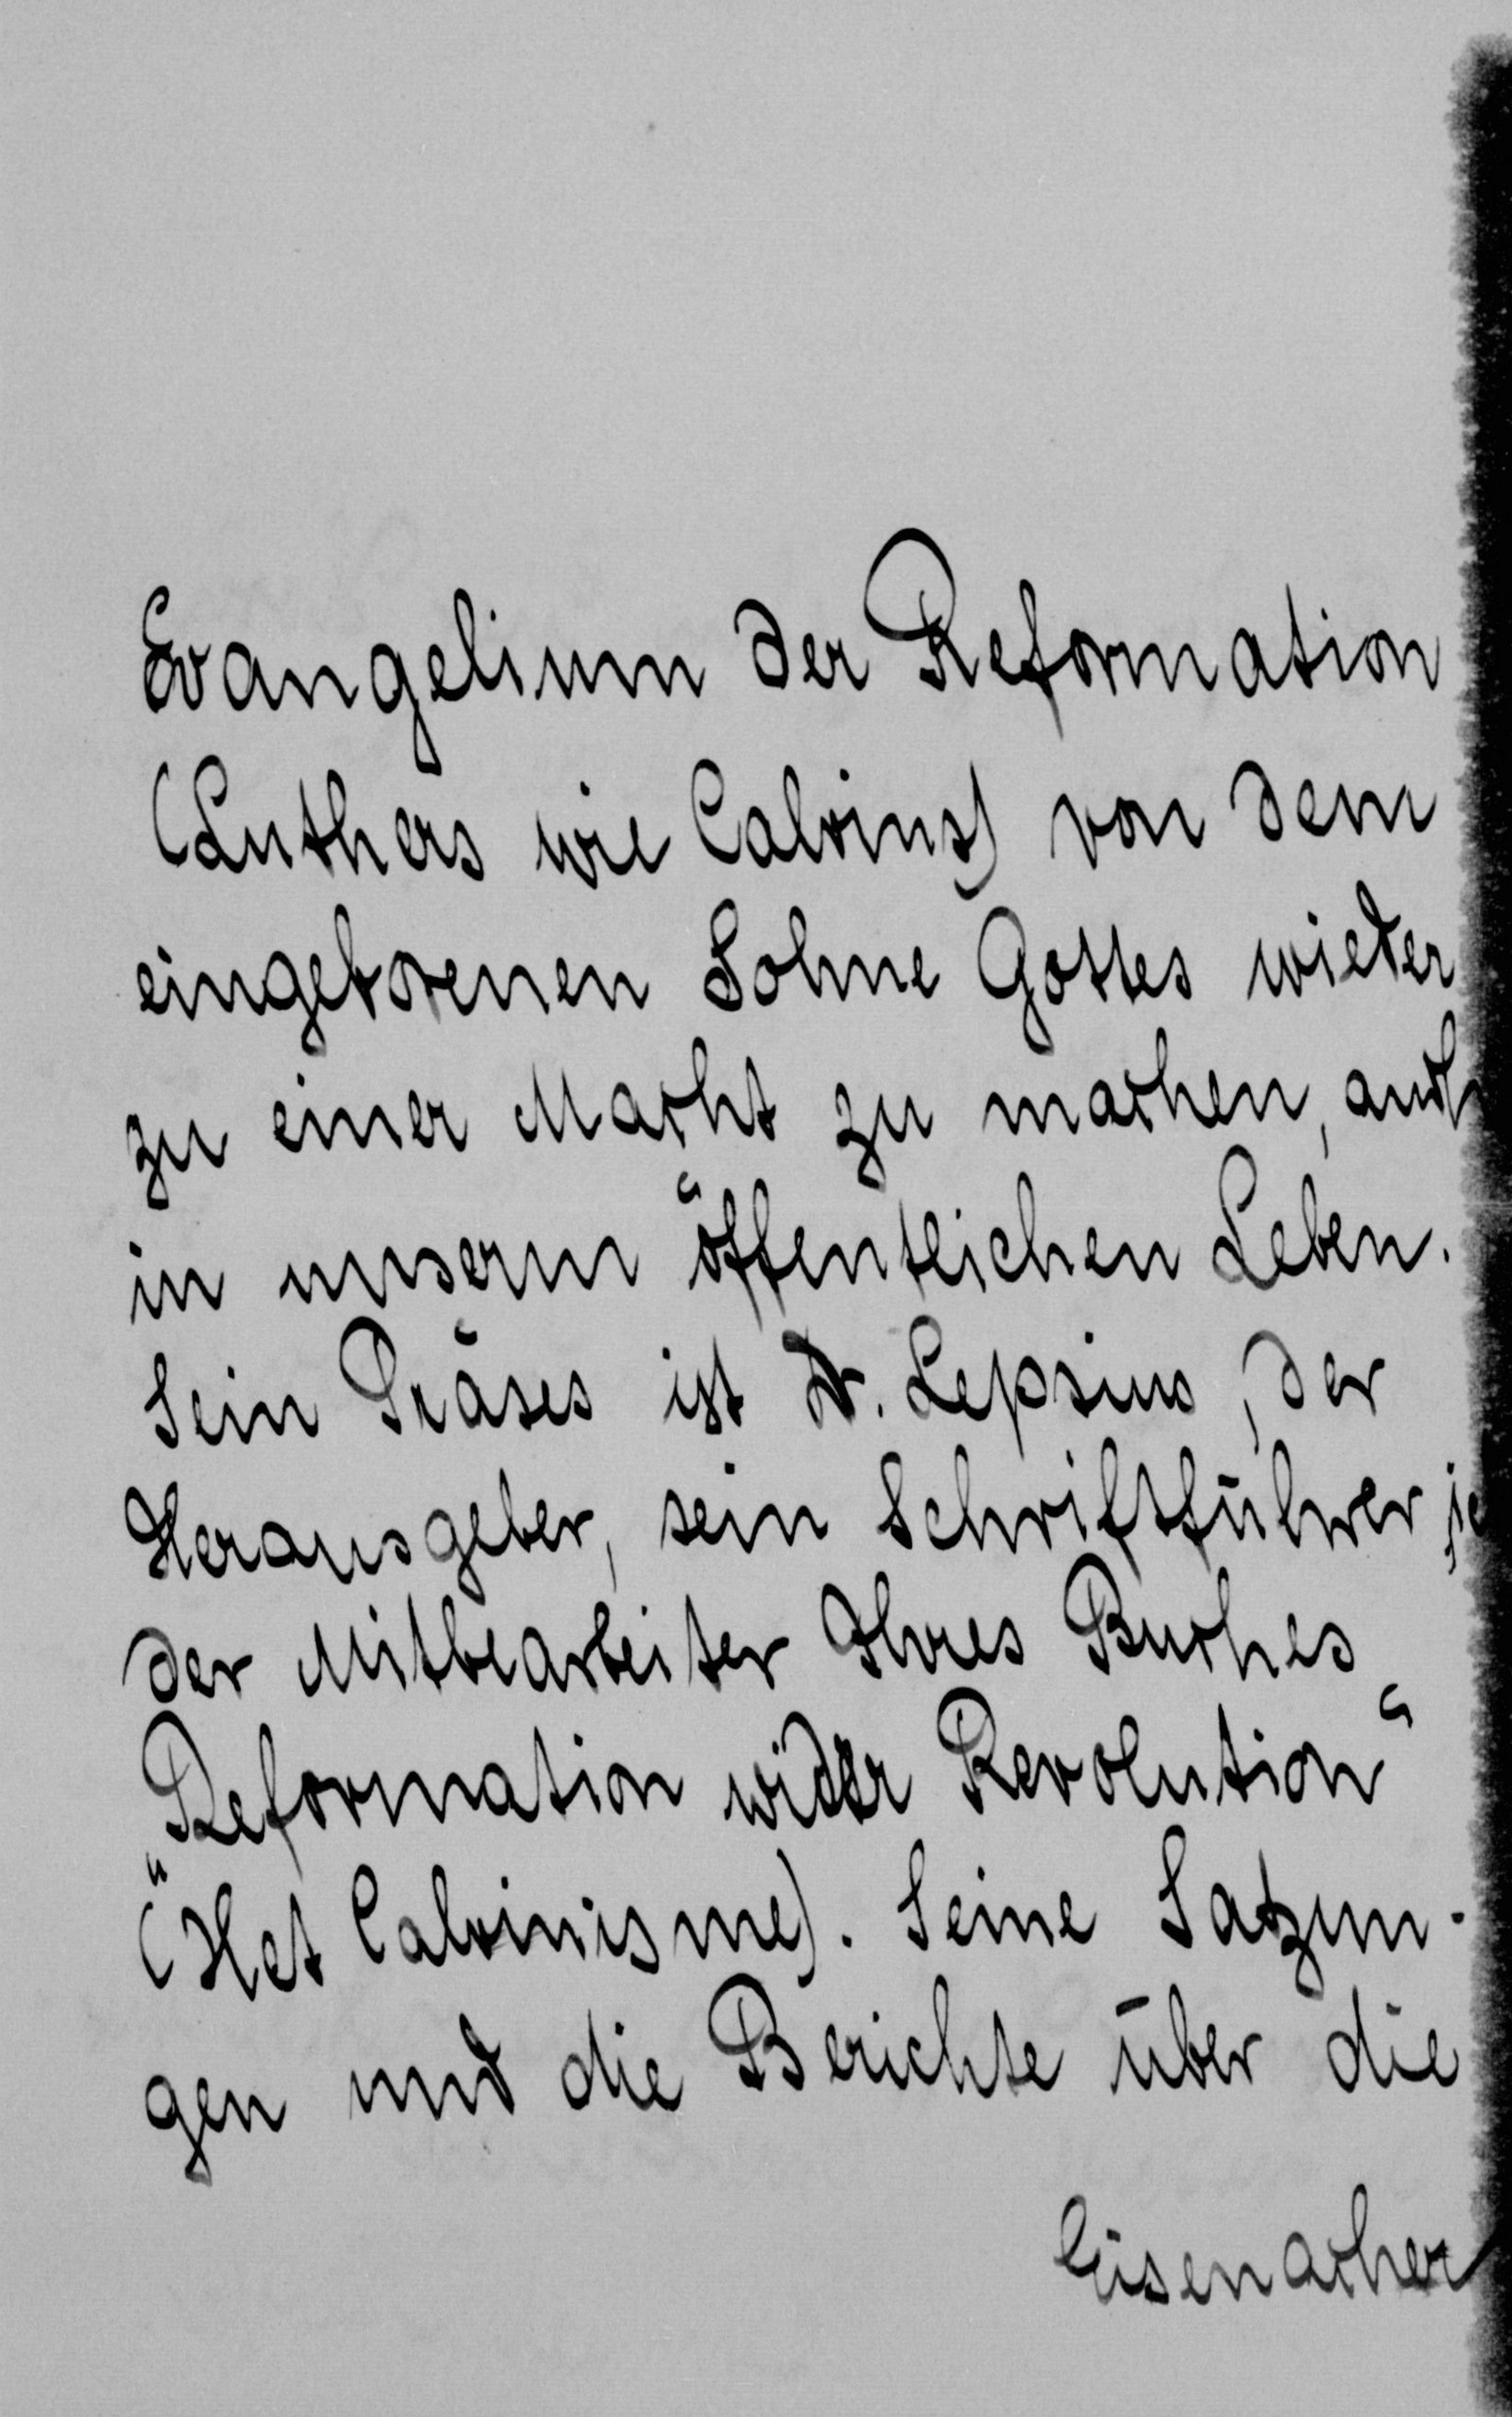 Evangelium der Reformation
(Luthers wie Calvins) von dem
eingeborenen Sohne Gottes wieder
zu einer Macht zu machen, auch
in unserm öffentlichen Leben.
Sein Präses ist Dr. Lepsius, der
Herausgeber, sein Schriftführer
der Mitbearbeiter Ihres Buches
„Reformation wider Revolution“
(Het Calvinisme). Seine Satzun-
gen und die Berichte über die
Eisenacher